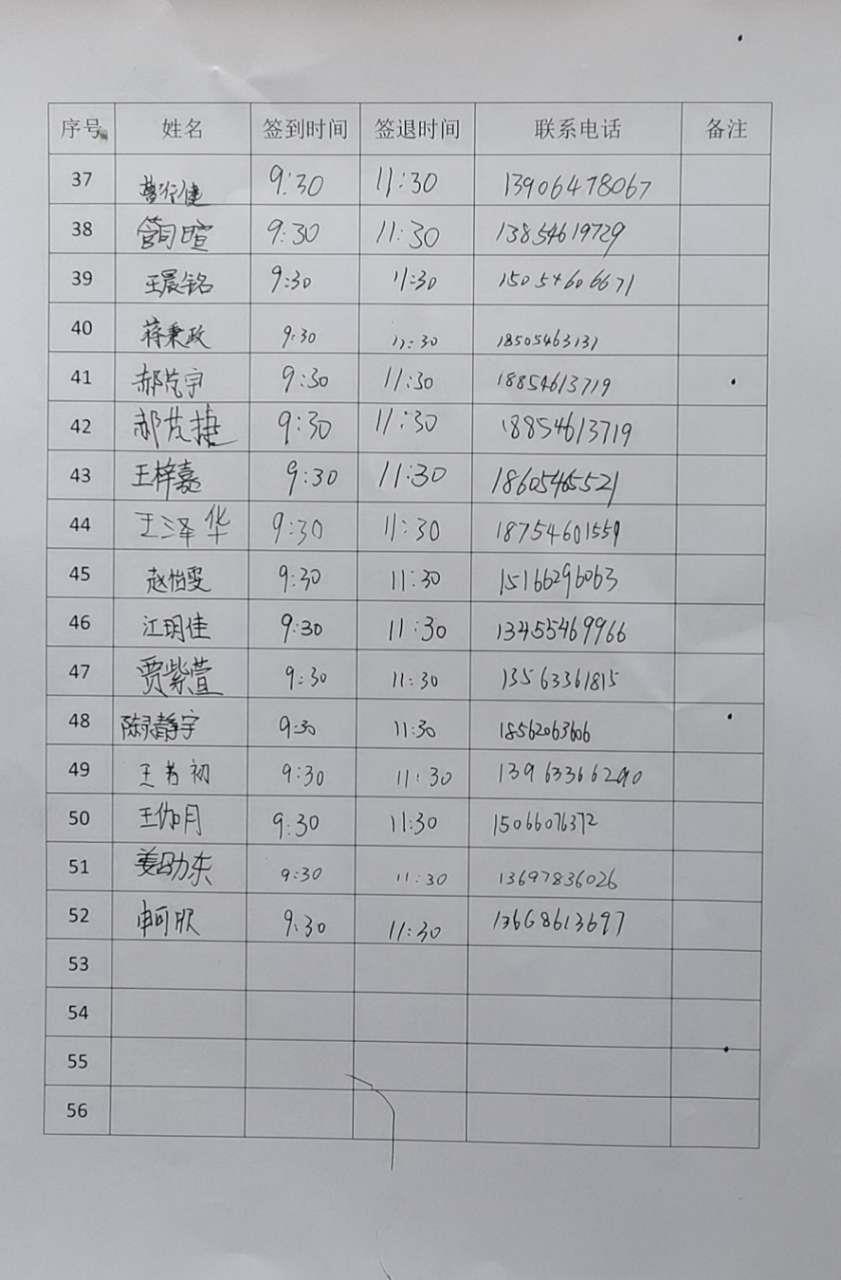 序号 姓名 签到时间 签退时间 联系电话 备注
37 曹行健 9:30 11:30 13906478067
38 管旬暄 9:30 11:30 13854619729
39 王晨铭 9:30 11:30 15054606671
40 蒋秉政 9:30 11:30 18505463131
41 郝芃宇 9:30 11:30 18854613719
42 郝芃捷 9:30 11:30 18854613719
43 王梓嘉 9:30 11:30 18605465521
44 王泽华 9:30 11:30 18754601559
45 赵怡雯 9:30 11:30 15166296063
46 江玥佳 9:30 11:30 13455469966
47 贾紫萱 9:30 11:30 13563361815
48 静宇 9:30 11:30 18562063606
49 王若初 9:30 11:30 13963366290
50 王伽月 9:30 11:30 15066076372
51 姜勖东 9:30 11:30 13697836026
52 申可欣 9:30 11:30 13668613697
53
54
55
56